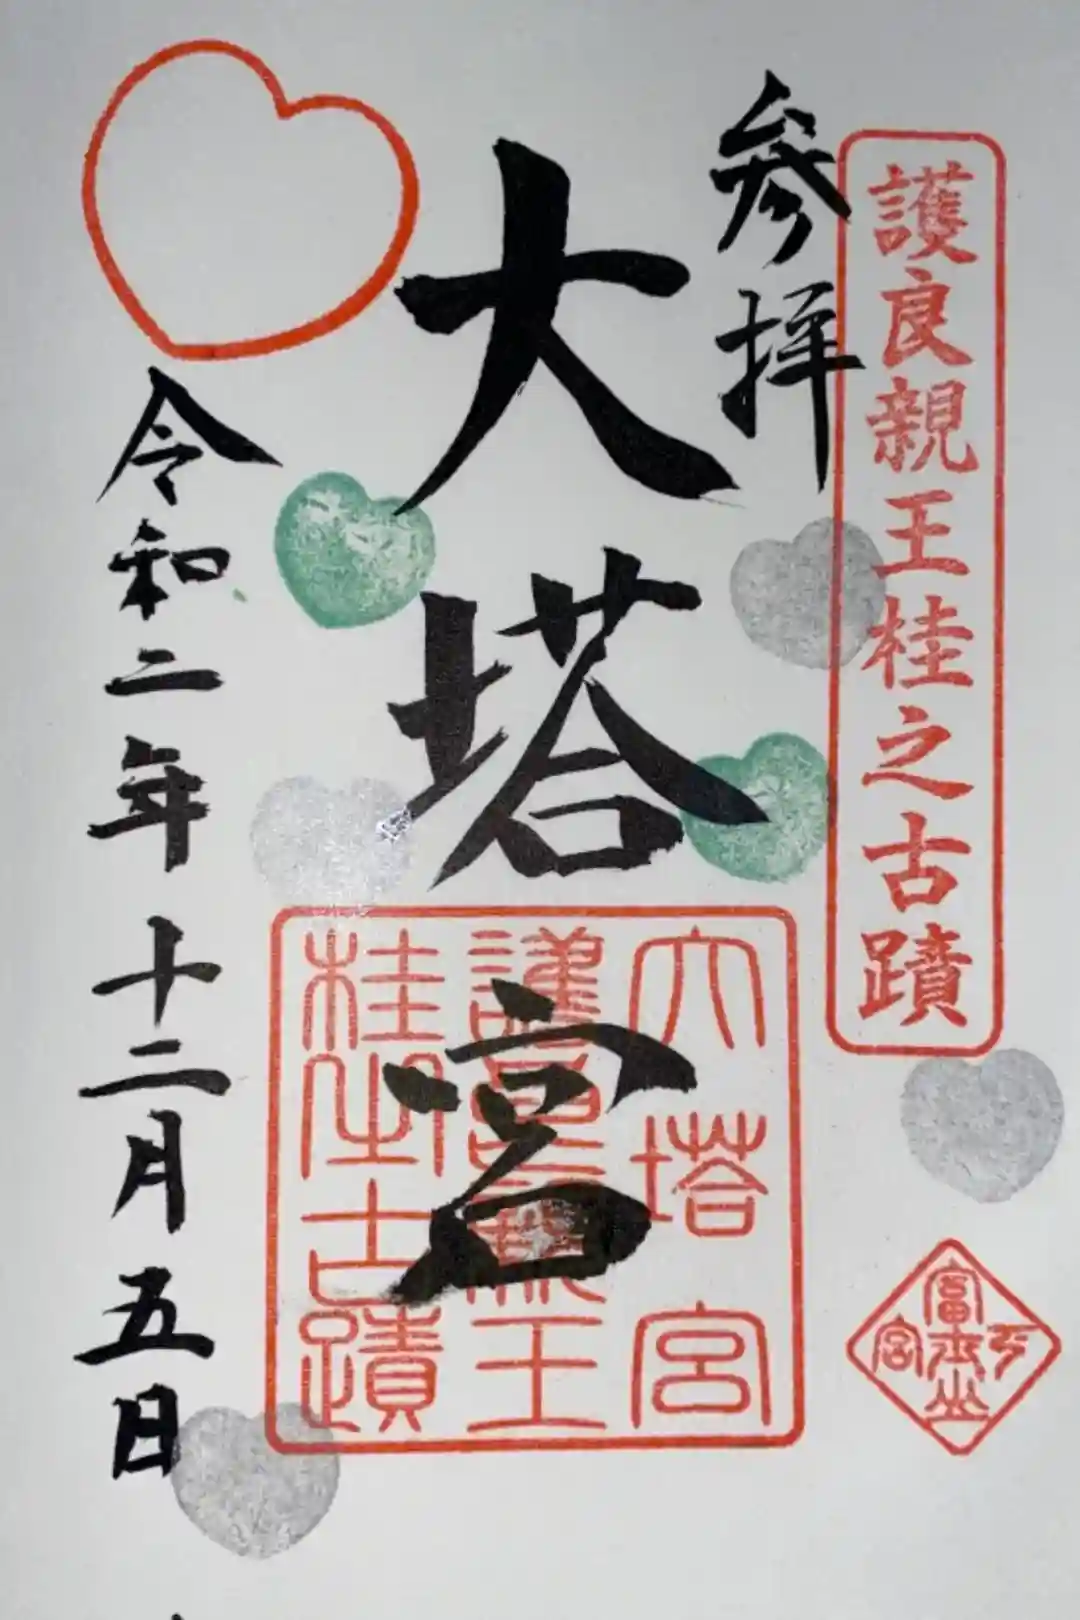 護良親王桂之古蹟
参拝
大塔宮
大塔宮
護良親王
桂之古蹟
令和二年十二月五日